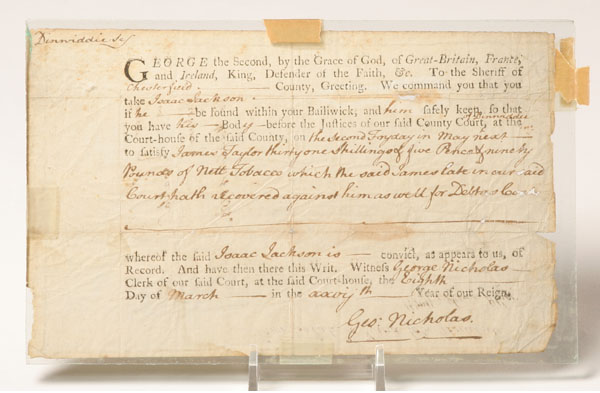 Dinwiddie Sc
GEORGE the Second, by the Grace of God, of Great-Britain, France,
and Ireland, King, Defender of the Faith, &c. To the Sheriff of
Chesterfield County, Greeting. We command you that you
take Isaac Jackson
if he be found within your Bailiwick; and him safely keep, so that
you have his Body before the Justices of our said County Court, at the
Dinwiddie
Court-house of the said County, on the Second Fryday in May next
to satisfy James Taylor thirty one Shillings & five Pence & ninety
Pounds of Nett Tobacco which the said James late in our said
Court hath recovered against him as well for Debt as
whereof the said Isaac Jackson is convict, as appears to us, of
Record. And have then there this Writ. Witness George Nicholas
Clerk of our said Court, at the said Court-house, the Eighth
Day of March in the xxvijth Year of our Reign.
Geo: Nicholas.